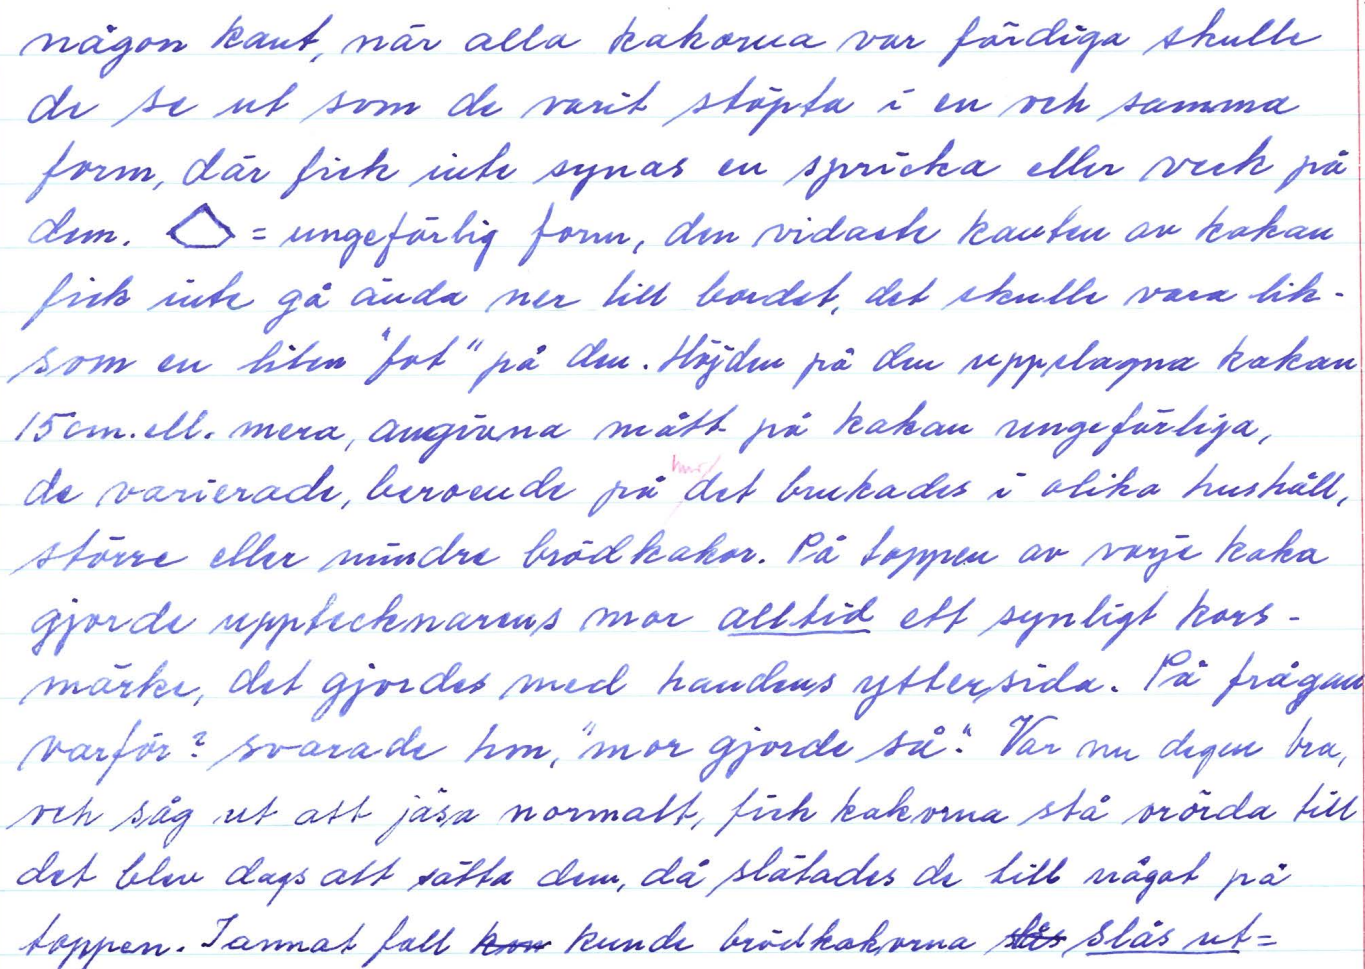 någon kant, när alla kakorna var färdiga skulle
de se ut som de varit stöpta i en och samma
form, där fick inte synas en spricka eller veck på
dem. = ungefärlig form, den vidaste kanten av kakan
fick inte gå ända ner till bordet, det skulle vara lik-
som en liten "fot" på den. Höjden på den uppslagna kakan
15 cm. ell. mera, angivna mått på kakan ungefärliga,
de varierade, beroende på hur det brukades i olika hushåll,
större eller mindre brödkakor. På toppen av varje kaka
gjorde upptecknarens mor alltid ett synligt kors-
märke, det gjordes med handens yttersida. På frågan
varför? svarade hon, "mor gjorde så". Var nu degen bra,
och såg ut att jäsa normalt, fick kakorna stå orörda till
det blev dags att sätta dem, då slätades de till något på
toppen. I annat fall kunde brödkakorna slås ut=